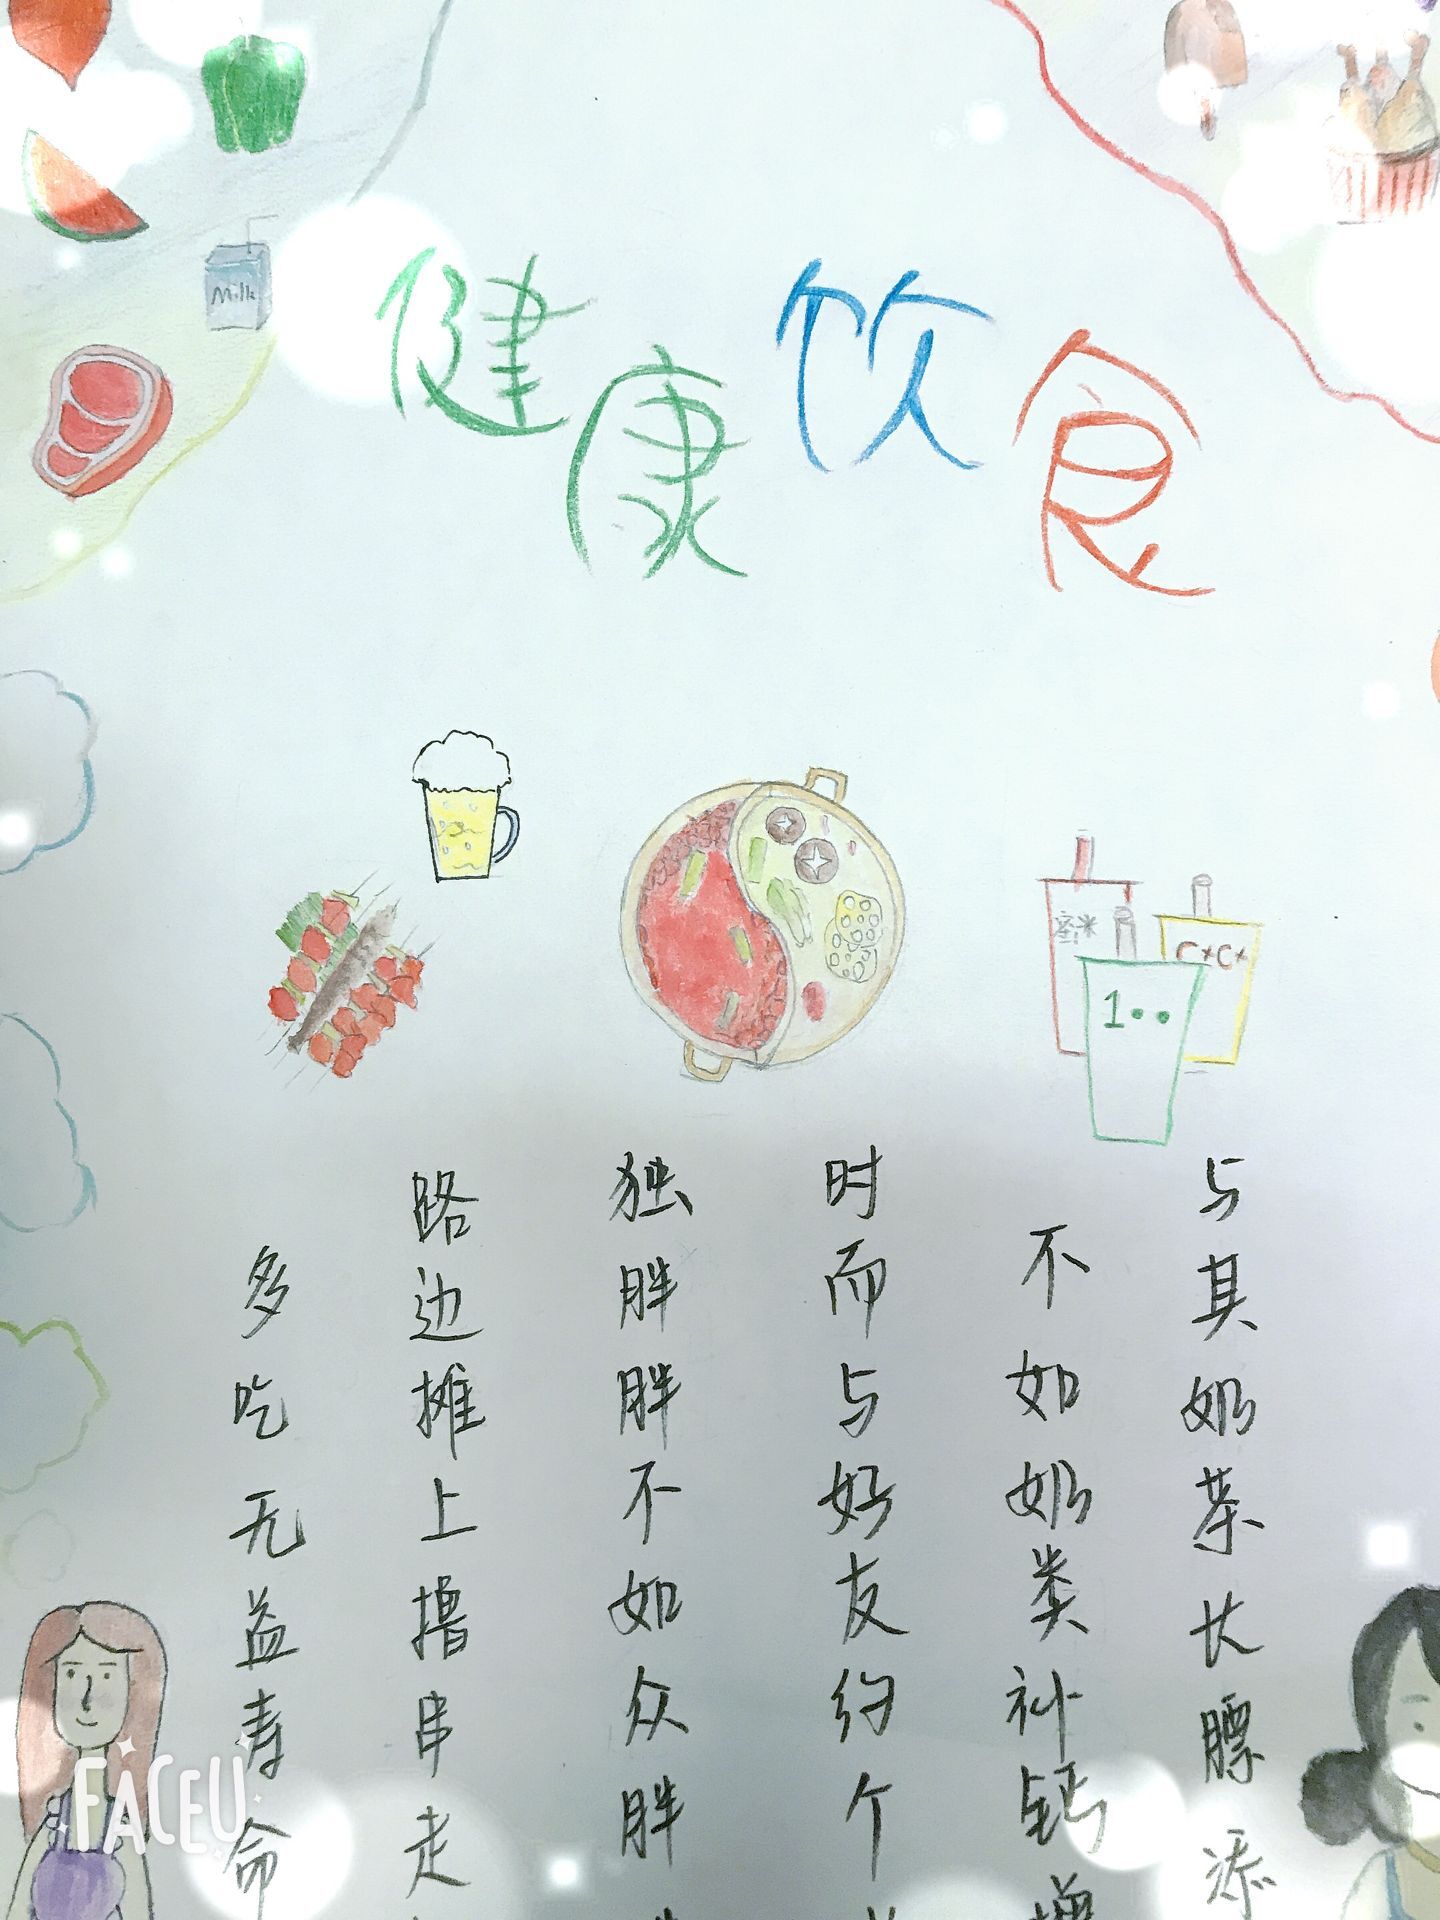 Milk
健康饮食
蜜
C×C×
1••
与其奶茶长膘添
不如奶类补钙增
时而与好友约个
独胖胖不如众胖
路边摊上撸串走
多吃无益寿命
FACEU